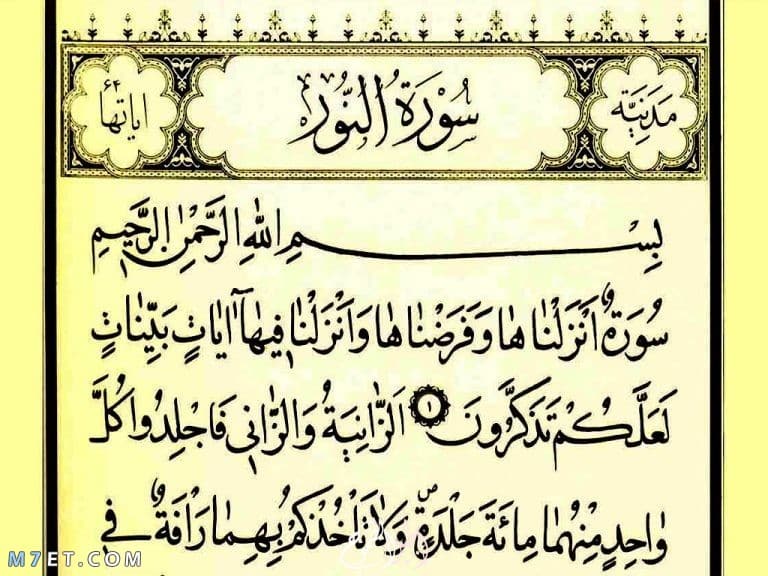 مَدَنِيَّة سُورَةُ النُّورِ اياتها ٦٤
بِسْمِ اللّٰهِ الرَّحْمٰنِ الرَّحِيمِ
سُورَةٌ اَنْزَلْنَاهَا وَفَرَضْنَاهَا وَاَنْزَلْنَا فِيهَآ اٰيَاتٍ بَيِّنَاتٍ
لَعَلَّكُمْ تَذَكَّرُونَ ١ اَلزَّانِيَةُ وَالزَّانِى فَاجْلِدُوا كُلَّ
وَاحِدٍ مِنْهُمَا مِائَةَ جَلْدَةٍ وَلَا تَأْخُذْكُمْ بِهِمَا رَأْفَةٌ فِى
M7ET.COM